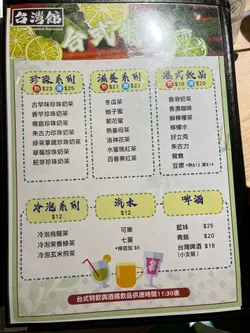 台灣館
台式
珍啟系列
熱 $23 凍 $25
古早味珍珠奶茶
香芋珍珠奶茶
椰島珍珠奶茶
朱古力珍珠奶茶
綠菜華國珍珠奶茶
草莓珍珠奶茶
藍芽珍珠奶茶
滋養系列
熱 $21 凍 $23
冬瓜茶
柚子蜜
菊花蜜
熱薑母茶
洛神花茶
水蜜桃紅茶
百香果紅茶
港式飲品
熱 $18 凍 $20
香滑奶茶
香濃咖啡
鮮檸檬茶
檸檬水
好立克
朱古力
鴛鴦
豆漿
冷泡系列
$12
冷泡烏龍茶
冷泡茉香綠茶
冷泡玄米煎茶
汽水
$12
可樂
七喜
*檸檬加 $5
啤酒
藍妹 $25
青島 $20
台灣啤酒 $18
(小支裝)
台式特飲與酒精飲品供應時間11:30後